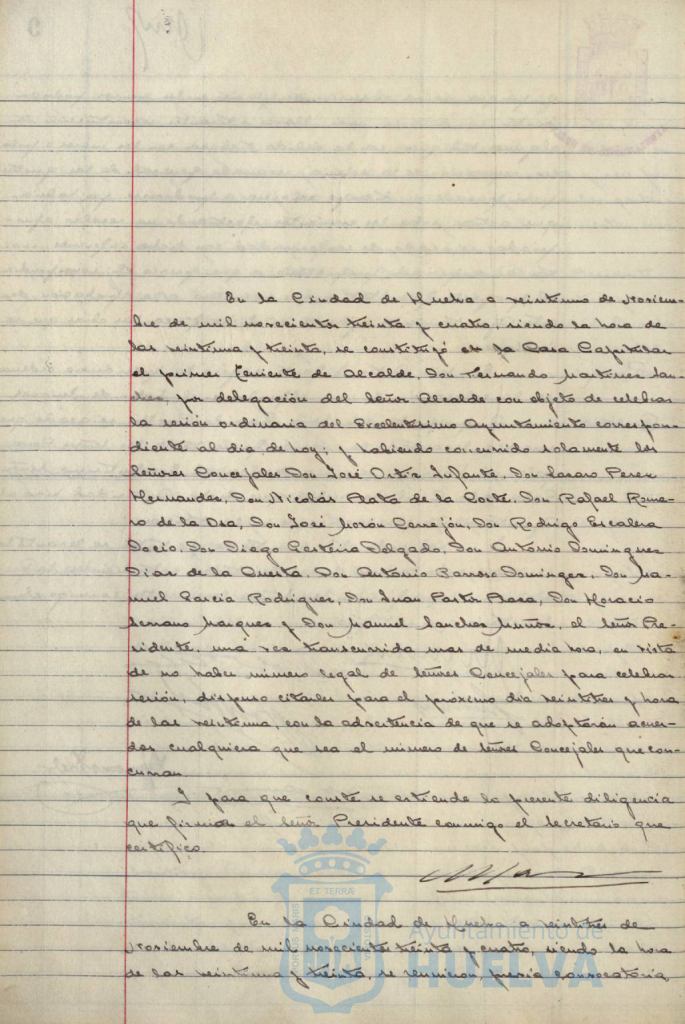 En la Ciudad de Huelva a veintiuno de Noviem-
bre de mil novecientos treinta y cuatro, siendo la hora de
las veintiuna y treinta, se constituyó en la Casa Capitular
el primer Teniente de Alcalde, Don Fernando Martinez San-
chez, por delegación del Señor Alcalde con objeto de celebrar
la sesión ordinaria del Excelentísimo Ayuntamiento correspon-
diente al dia de hoy; y habiendo concurrido solamente los
Señores Concejales Don José Ortiz Infante, Don Lazaro Perez
Hernandez, Don Nicolás Plata de la Corte, Don Rafael Rome-
ro de la Osa, Don José Morón Cerrejón, Don Rodrigo Escalera
Docio, Don Diego Delgado, Don Antonio Dominguez
Diaz de la Cuesta, Don Antonio Barroso Dominguez, Don Ma-
nuel Garcia Rodriguez, Don Juan Pastor Plaza, Don Horacio
Serrano Marquez y Don Manuel Sanchez Muñoz, el Señor Pre-
sidente, una vez transcurrida mas de media hora, en vista
de no haber número legal de Señores Concejales para celebrar
sesión, dispuso citarles para el próximo dia veintitres y hora
de las veintiuna, con la advertencia de que se adoptarán acuer-
dos cualquiera que sea el número de Señores Concejales que con-
curran.
Y para que conste se extiende la presente diligencia
que firma el Señor Presidente conmigo el Secretario que
certifico.
En la Ciudad de Huelva a veintitres de
Noviembre de mil novecientos treinta y cuatro, siendo la hora
de las veintiuna y treinta, se reunieron, previa convocatoria,
Ayuntamiento de
HUELVA